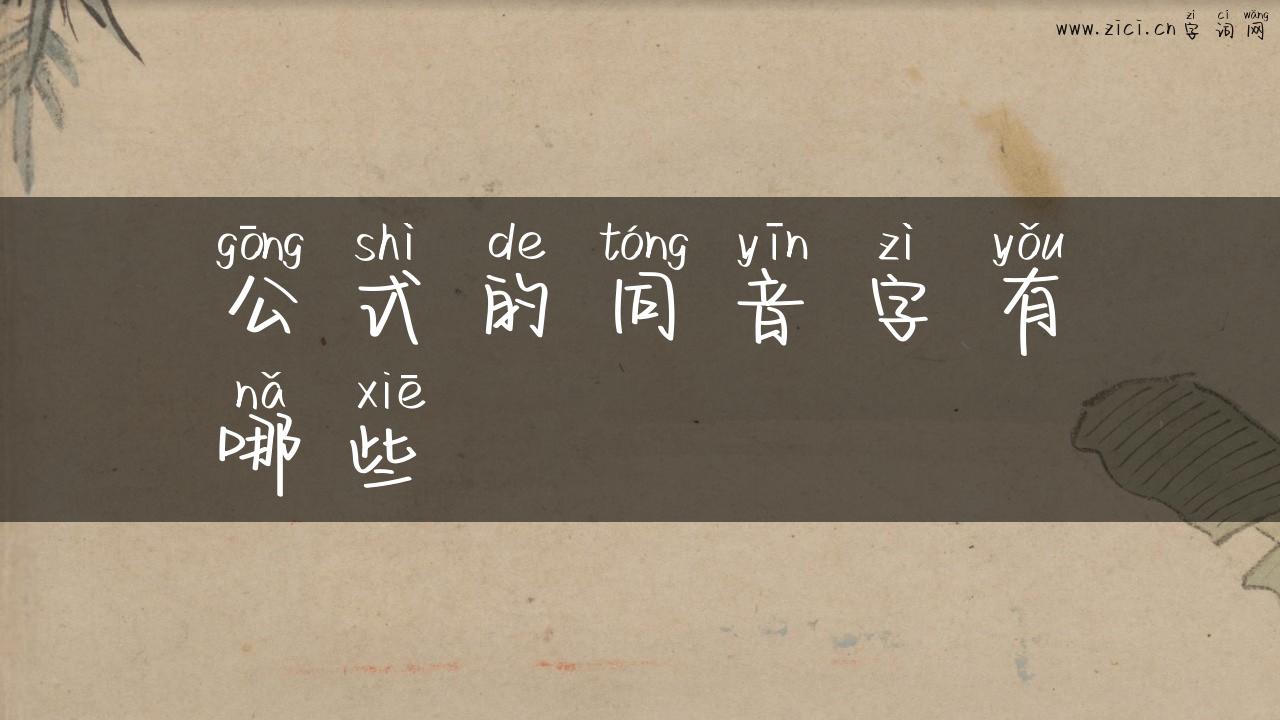 zì cí wǎng
www.zici.cn 字 词 网
gōng shì de tóng yīn zì yǒu
公 式 的 同 音 字 有
nǎ xiē
哪 些